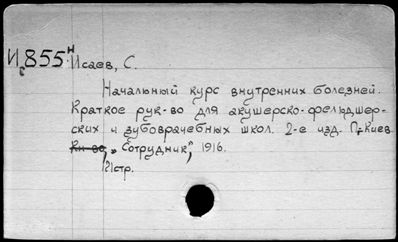 И 855 н
с
Исаев, С.
Начальный курс внутренних болезней.
Краткое рук-во для акушерско-фельдшер-
ских и зубоврачебных школ. 2-е изд. П-Киев.
Кн-во, „Сотрудник", 1916.
71стр.